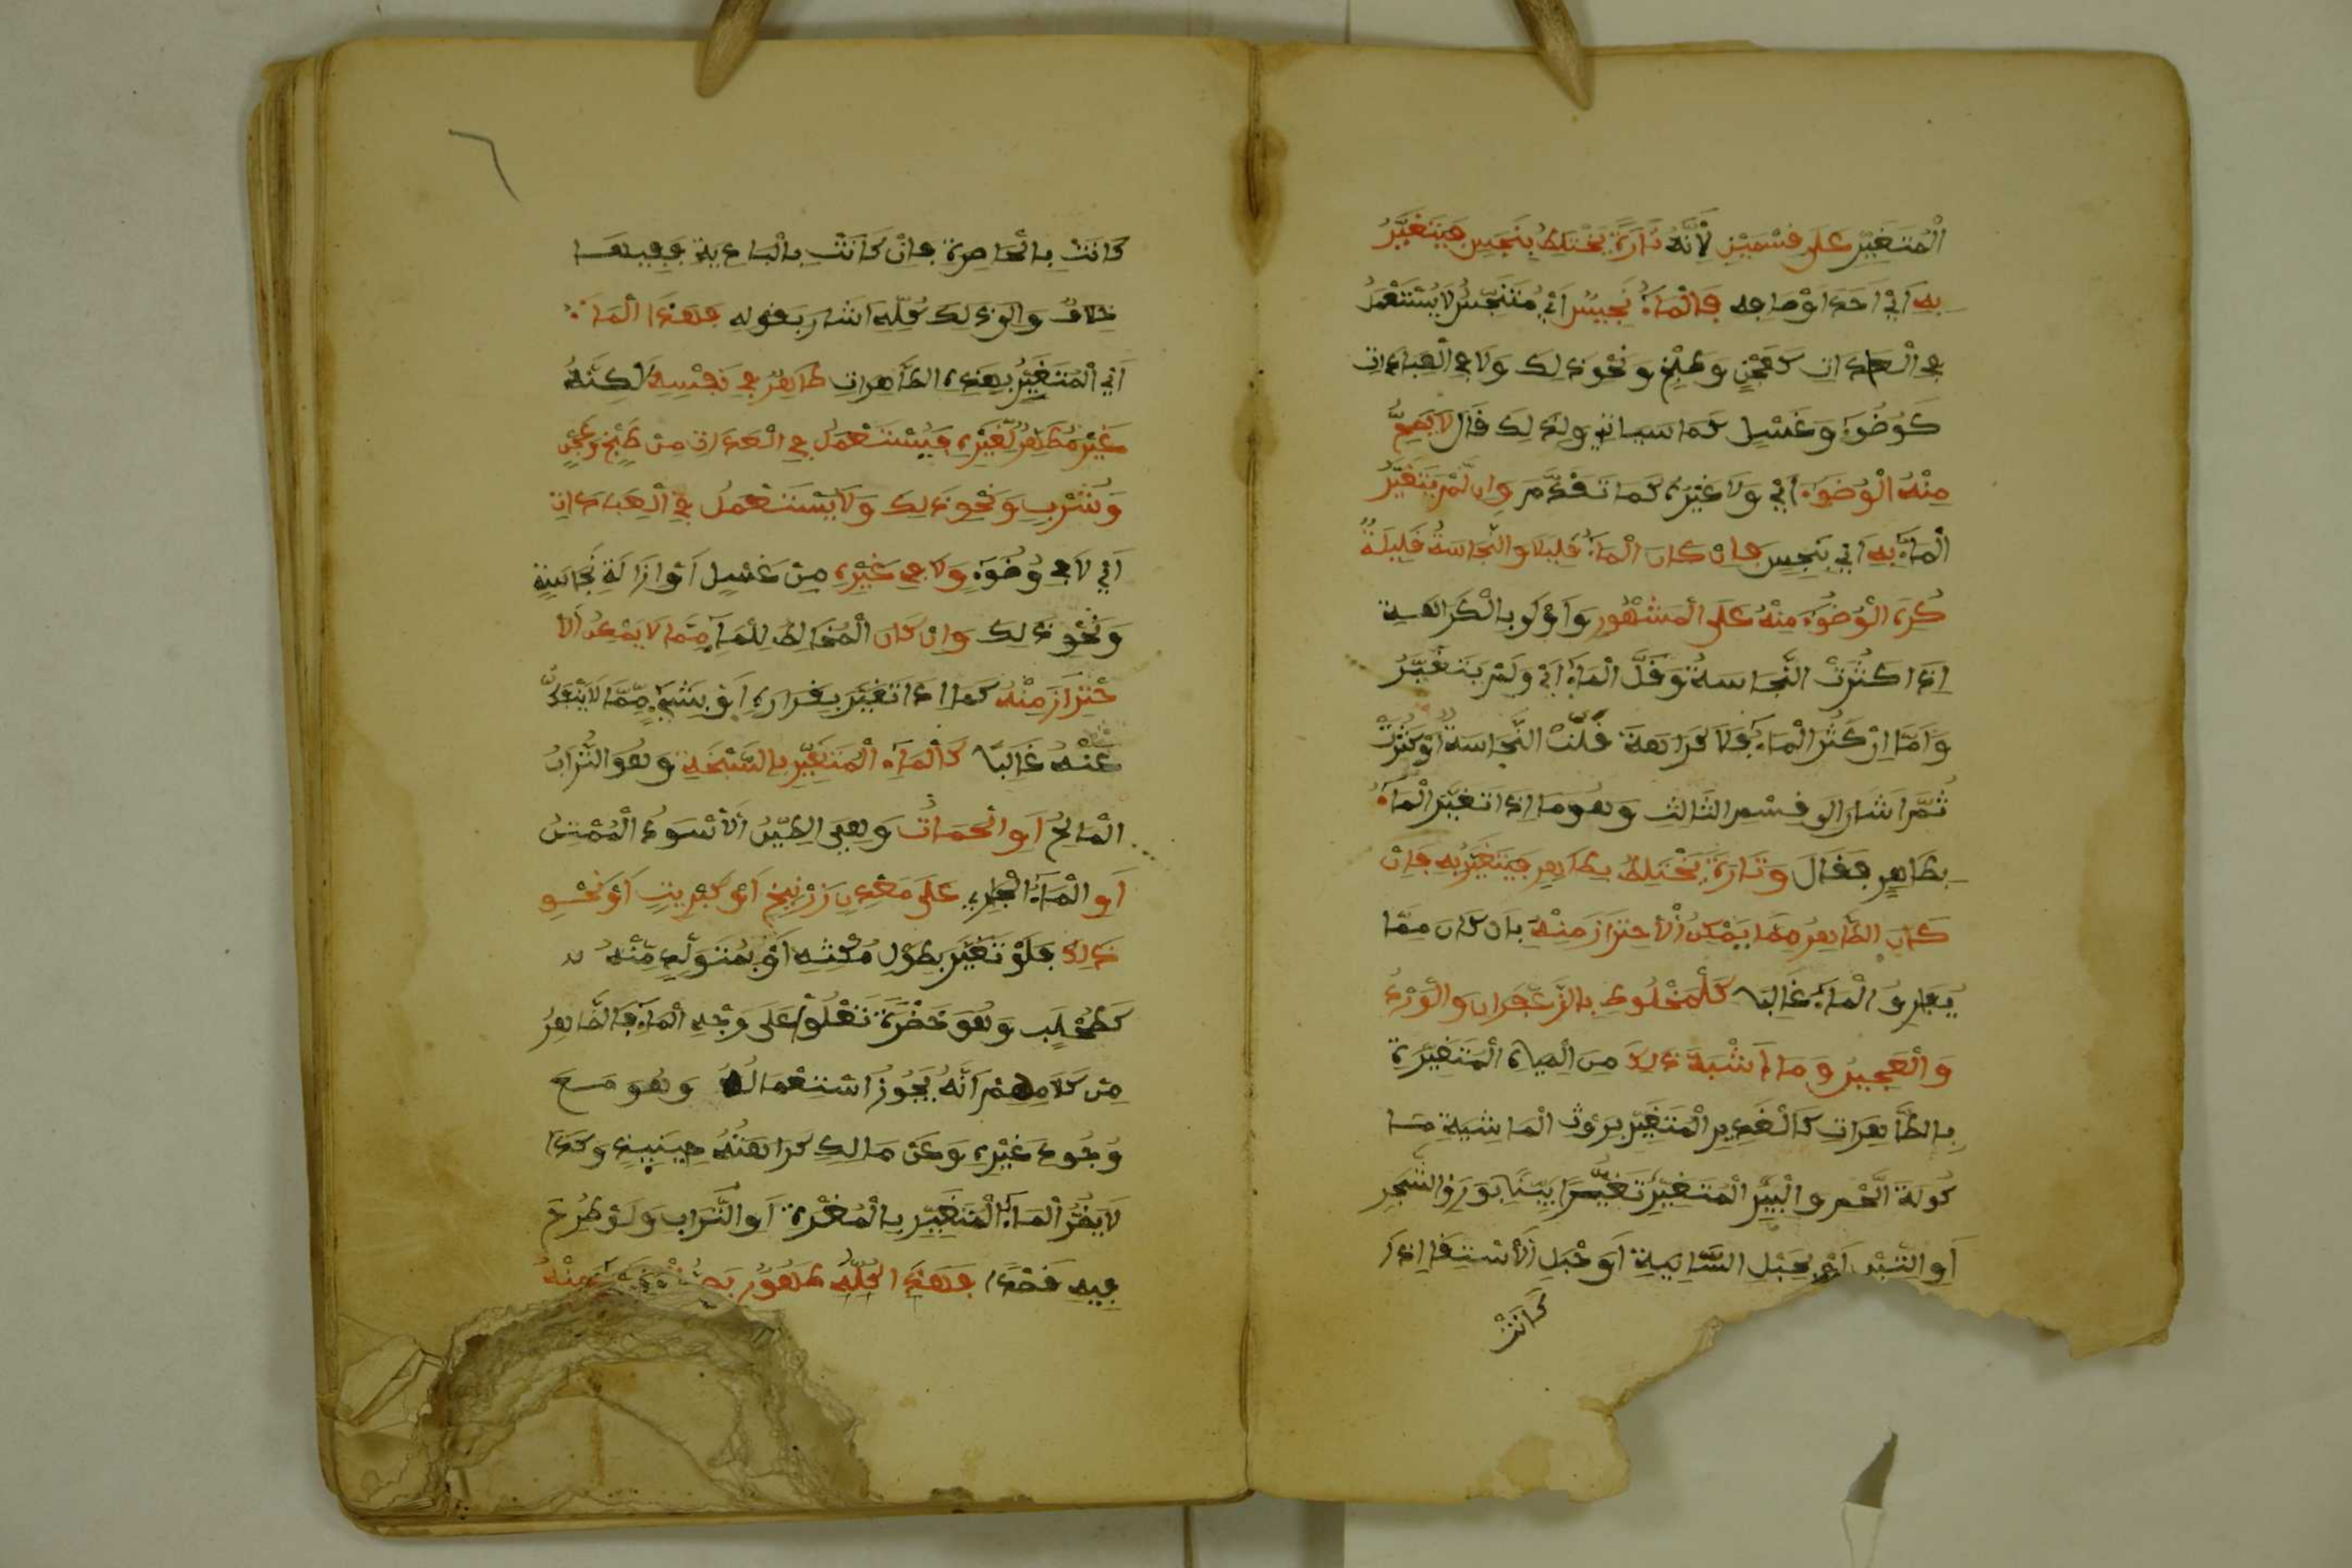 الْمُتَغَيِّرِ عَلَى قِسْمَيْنِ لِأَنَّهُ تَارَةً يَخْتَلِطُ بِنَجِسٍ فَيَتَغَيَّرُ
بِهِ أَيْ أَحَدَ أَوْصَافِهِ فَالْمَاءُ نَجِسٌ أَيْ مُتَنَجِّسٌ لَا يُسْتَعْمَلُ
فِي الْعَادَاتِ كَعَجْنٍ وَطَبْخٍ وَنَحْوِ ذَلِكَ وَلَا فِي الْعِبَادَاتِ
كَوُضُوءٍ وَغَسْلٍ كَمَا سَيَاتِي وَلِذَلِكَ قَالَ لَا يَصِحُّ
مِنْهُ الْوُضُوءُ أَيْ وَلَا غَيْرُهُ كَمَا تَقَدَّمَ وَإِن لَّمْ يَتَغَيَّرْ
الْمَاءُ بِهِ أَيْ بِنَجِسٍ فَإِنْ كَانَ الْمَاءُ قَلِيلًا وَالنَّجَاسَةُ قَلِيلَةً
كُرِهَ الْوُضُوءُ مِنْهُ عَلَى الْمَشْهُورِ وَأَوْلَى بِالْكَرَاهَةِ
إِذَا كَثُرَتْ النَّجَاسَةُ وَقَلَّ الْمَاءُ أَيْ وَلَمْ يَتَغَيَّرْ
وَأَمَّا إِنْ كَثُرَ الْمَاءُ فَلَا كَرَاهَةَ قَلَّتْ النَّجَاسَةُ أَوْ كَثُرَتْ
ثُمَّ أَشَارَ إِلَى قِسْمِ الثَّالِثِ وَهُوَ مَا إِذَا تَغَيَّرَ الْمَاءُ
بِطَاهِرٍ فَقَالَ وَتَارَةً يَخْتَلِطُ بِطَاهِرٍ فَيَتَغَيَّرُ بِهِ فَإِنْ
كَانَ الطَّاهِرُ مِمَّا يُمْكِنُ الْأحْتِرَازُ مِنْهُ بِأَن كَانَ مِمَّا
يُفَارِقُ الْمَاءَ غَالِبًا كَالْمَخْلُوطِ بِالزَّعْفَرَانِ وَالْوَرْدِ
وَالْعَجِينِ وَمَا أَشْبَهَ ذَلِكَ مِنَ الْمِيَاهِ الْمُتَغَيِّرَةِ
بِالطَّاهِرَاتِ كَالْغَدِيرِ الْمُتَغَيِّرِ بِرَوْثِ الْمَاشِيَةِ مَا
كُولَةَ الَّحْمِ وَالْبِيرِ الْمُتَغَيِّرِ تَغَيُّرًا بَيِّنًا بِوَرَقِ الشَّجَرِ
أَوِ التِّبْنِ أَوْ بِحَبْلِ السَّانِيَةِ أَوْ حَبْلِ الْأسْتِقَا إِذَا
كَانَتْ
٦
كَانَتْ بِالْحَاضِرَةِ فَإِنْ كَانَتْ بِالْبَادِيَةِ فَفِيهَا
خِلَافٌ وَإِلَى ذَلِكَ كُلِّهِ أَشَارَ بِقَوْلِهِ فَهَذَا الْمَاءُ
أَيْ الْمُتَغَيِّرُ بِهَذِهِ الطَّاهِرَاتِ طَاهِرٌ فِي نَفْسِهِ لَكِنَّهُ
غَيْرُ مُطَهِّرٍ لِّغَيْرِهِ فَيُسْتَعْمَلُ فِي الْعَادَاتِ مِنْ طَبْخٍ وَعَجْنٍ
وَشُرْبٍ وَنَحْوِ ذَلِكَ وَلَا يُسْتَعْمَلُ فِي الْعِبَادَاتِ
أَيْ لَا فِي وُضُوءٍ وَلَا فِي غَيْرِهِ مِنْ غَسْلٍ أَوْ إِزَالَةِ نَجَاسَةٍ
وَنَحْوِ ذَلِكَ وَإِن كَانَ الْمُخَالِطُ لِلْمَاءِ مِمَّا لَا يُمْكِنُ الْأ
حْتِرَازُ مِنْهُ كَمَا إِذَا تَغَيَّرَ بِقَرَارِهِ أَوْ بِشَيْءٍ مِّمَّا لَا يَنْفَكُّ
عَنْهُ غَالِبًا كَالْمَاءِ الْمُتَغَيِّرِ بِالسَّبْخَةِ وَهُوَ التُّرَابُ
الْمَالِحُ أَوِ الْحَمَأَتِ وَهِيَ الطِّينُ الْأَسْوَدُ الْمُنْتِنُ
أَوِ الْمَاءُ الْجَارِي عَلَى مَعْدِنِ زَرْنِيخٍ أَوْ كِبْرِيتٍ أَوْ نَحْوِ
ذَلِكَ فَلَوْ تَغَيَّرَ بِطُولِ مُكْثِهِ أَوْ بِمُتَوَلِّدٍ مِّنْهُ
كَطُحْلُبٍ وَهُوَ خَضْرَةٌ تَعْلُوا عَلَى وَجْهِ الْمَاءِ فَالظَّاهِرُ
مِنْ كَلَامِهِمْ أَنَّهُ يَجُوزُ اسْتِعْمَالُهُ وَهُوَ مَعَ
وُجُودِ غَيْرِهِ وَعَنْ مَالِكٍ كَرَاهَتُهُ حِينَئِذٍ وَكَذَا
لَا يَضُرُّ الْمَاءَ الْمُتَغَيِّرِ بِالْمُغْرَةِ أَوِ التُّرَابِ وَلَوْ طُرِحَ
فِيهِ قَصْدًا فَهَذَا كُلُّهُ طَهُورٌ يَصِحُّ مِنْهُ